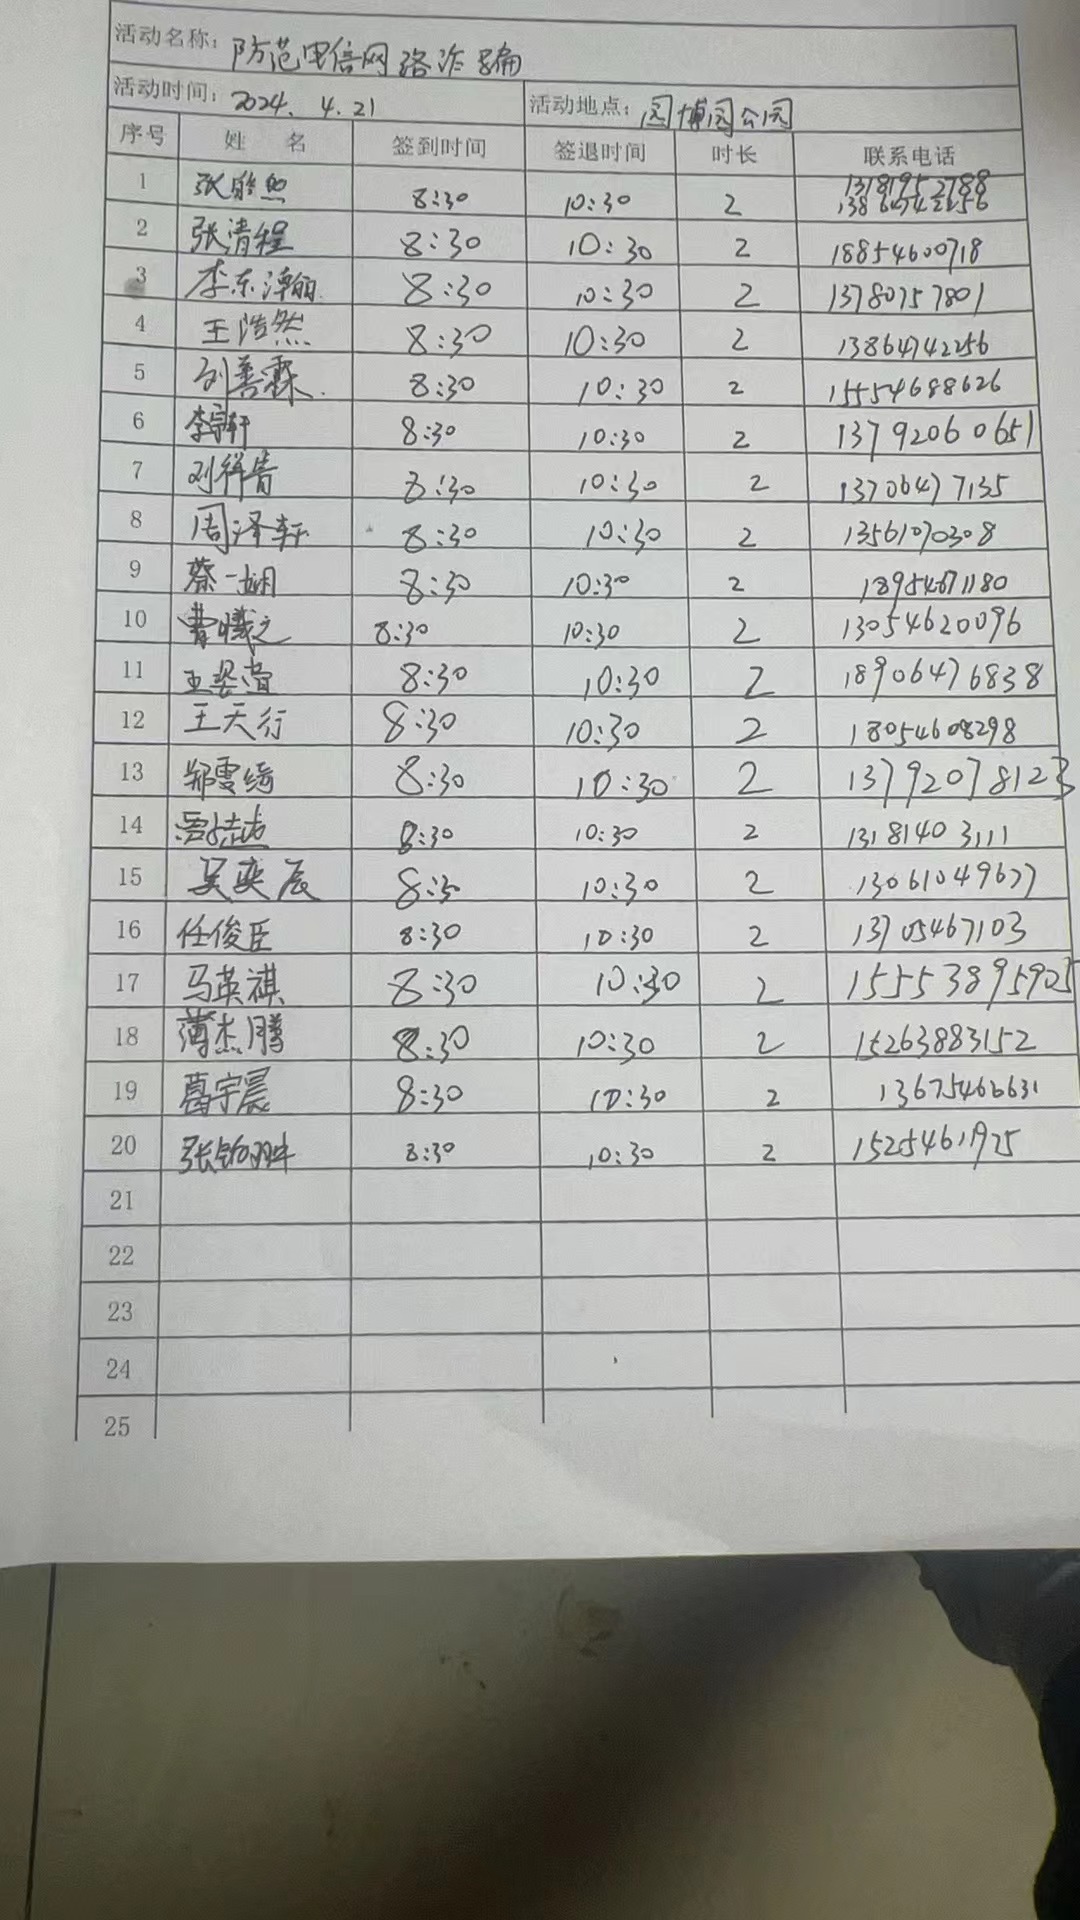 活动名称: 防范电信网络诈骗
活动时间: 2024. 4. 21 活动地点: 园博园公园
序号 姓 名 签到时间 签退时间 时长 联系电话
1 8:30 10:30 2
2 张清程 8:30 10:30 2 18854600718
3 李东漳 8:30 10:30 2 13780757801
4 王浩然 8:30 10:30 2 13864742256
5 刘善霖. 8:30 10:30 2 15554688626
6 李宗轩 8:30 10:30 2 13792060651
7 刘祥青 8:30 10:30 2 13706477135
8 周泽轩 8:30 10:30 2 13561070308
9 蔡一娴 8:30 10:30 2 18954671180
10 曹曦之 8:30 10:30 2 13054620096
11 8:30 10:30 2 18906476838
12 王天行 8:30 10:30 2 18054608298
13 郑雯绮 8:30 10:30 2 13792078123
14 8:30 10:30 2 13181403111
15 吴奕辰 8:30 10:30 2 13061049677
16 任俊臣 8:30 10:30 2 13705467103
17 马英祺 8:30 10:30 2 15553895925
18 薄杰腾 8:30 10:30 2 15263883152
19 葛宇晨 8:30 10:30 2 13675466631
20 8:30 10:30 2 15254611925
21
22
23
24
25